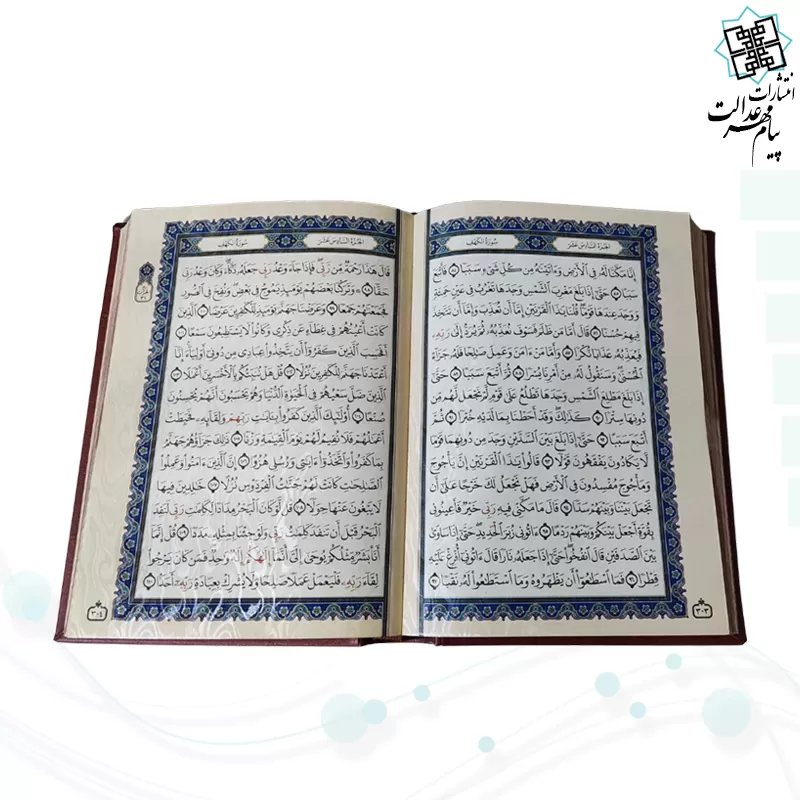 انتشارات
پیام مهر عدالت
الجُزءُ السَّادِسَ عَشَرَ
سُورَةُ الكَهْفِ
إِنَّا مَكَّنَّا لَهُۥ فِي ٱلْأَرْضِ وَءَاتَيْنَٰهُ مِن كُلِّ شَيْءٍ سَبَبًا ٨٤ فَأَتْبَعَ
سَبَبًا ٨٥ حَتَّىٰٓ إِذَا بَلَغَ مَغْرِبَ ٱلشَّمْسِ وَجَدَهَا تَغْرُبُ فِي عَيْنٍ حَمِئَةٍ
وَوَجَدَ عِندَهَا قَوْمًا قُلْنَا يَٰذَا ٱلْقَرْنَيْنِ إِمَّآ أَن تُعَذِّبَ وَإِمَّآ أَن تَتَّخِذَ
فِيهِمْ حُسْنًا ٨٦ قَالَ أَمَّا مَن ظَلَمَ فَسَوْفَ نُعَذِّبُهُۥ ثُمَّ يُرَدُّ إِلَىٰ رَبِّهِۦ
فَيُعَذِّبُهُۥ عَذَابًا نُّكْرًا ٨٧ وَأَمَّا مَنْ ءَامَنَ وَعَمِلَ صَٰلِحًا فَلَهُۥ جَزَآءً
ٱلْحُسْنَىٰ وَسَنَقُولُ لَهُۥ مِنْ أَمْرِنَا يُسْرًا ٨٨ ثُمَّ أَتْبَعَ سَبَبًا ٨٩ حَتَّىٰٓ
إِذَا بَلَغَ مَطْلِعَ ٱلشَّمْسِ وَجَدَهَا تَطْلُعُ عَلَىٰ قَوْمٍ لَّمْ نَجْعَل لَّهُم مِّن
دُونِهَا سِتْرًا ٩٠ كَذَٰلِكَ وَقَدْ أَحَطْنَا بِمَا لَدَيْهِ خُبْرًا ٩١ ثُمَّ
أَتْبَعَ سَبَبًا ٩٢ حَتَّىٰٓ إِذَا بَلَغَ بَيْنَ ٱلسَّدَّيْنِ وَجَدَ مِن دُونِهِمَا قَوْمًا
لَّا يَكَادُونَ يَفْقَهُونَ قَوْلًا ٩٣ قَالُوا۟ يَٰذَا ٱلْقَرْنَيْنِ إِنَّ يَأْجُوجَ
وَمَأْجُوجَ مُفْسِدُونَ فِي ٱلْأَرْضِ فَهَلْ نَجْعَلُ لَكَ خَرْجًا عَلَىٰٓ أَن
تَجْعَلَ بَيْنَنَا وَبَيْنَهُمْ سَدًّا ٩٤ قَالَ مَا مَكَّنِّي فِيهِ رَبِّي خَيْرٌ فَأَعِينُونِي
بِقُوَّةٍ أَجْعَلْ بَيْنَكُمْ وَبَيْنَهُمْ رَدْمًا ٩٥ ءَاتُونِي زُبَرَ ٱلْحَدِيدِ حَتَّىٰٓ إِذَا سَاوَىٰ
بَيْنَ ٱلصَّدَفَيْنِ قَالَ ٱنفُخُوا۟ حَتَّىٰٓ إِذَا جَعَلَهُۥ نَارًا قَالَ ءَاتُونِيٓ أُفْرِغْ عَلَيْهِ
قِطْرًا ٩٦ فَمَا ٱسْطَٰعُوٓا۟ أَن يَظْهَرُوهُ وَمَا ٱسْتَطَٰعُوا۟ لَهُۥ نَقْبًا ٩٧
٣٠٣
الجُزءُ السَّادِسَ عَشَرَ
سُورَةُ الكَهْفِ
قَالَ هَٰذَا رَحْمَةٌ مِّن رَّبِّي فَإِذَا جَآءَ وَعْدُ رَبِّي جَعَلَهُۥ دَكَّآءَ وَكَانَ وَعْدُ رَبِّي
حَقًّا ٩٨ وَتَرَكْنَا بَعْضَهُمْ يَوْمَئِذٍ يَمُوجُ فِي بَعْضٍ وَنُفِخَ فِي ٱلصُّورِ
فَجَمَعْنَٰهُمْ جَمْعًا ٩٩ وَعَرَضْنَا جَهَنَّمَ يَوْمَئِذٍ لِّلْكَٰفِرِينَ عَرْضًا ١٠٠ ٱلَّذِينَ
كَانَتْ أَعْيُنُهُمْ فِي غِطَآءٍ عَن ذِكْرِي وَكَانُوا۟ لَا يَسْتَطِيعُونَ سَمْعًا ١٠١
أَفَحَسِبَ ٱلَّذِينَ كَفَرُوٓا۟ أَن يَتَّخِذُوا۟ عِبَادِي مِن دُونِيٓ أَوْلِيَآءَ إِنَّآ
أَعْتَدْنَا جَهَنَّمَ لِلْكَٰفِرِينَ نُزُلًا ١٠٢ قُلْ هَلْ نُنَبِّئُكُم بِٱلْأَخْسَرِينَ أَعْمَٰلًا ١٠٣
ٱلَّذِينَ ضَلَّ سَعْيُهُمْ فِي ٱلْحَيَوٰةِ ٱلدُّنْيَا وَهُمْ يَحْسَبُونَ أَنَّهُمْ يُحْسِنُونَ
صُنْعًا ١٠٤ أُو۟لَٰٓئِكَ ٱلَّذِينَ كَفَرُوا۟ بِـَٔايَٰتِ رَبِّهِمْ وَلِقَآئِهِۦ فَحَبِطَتْ
أَعْمَٰلُهُمْ فَلَا نُقِيمُ لَهُمْ يَوْمَ ٱلْقِيَٰمَةِ وَزْنًا ١٠٥ ذَٰلِكَ جَزَآؤُهُمْ جَهَنَّمُ
بِمَا كَفَرُوا۟ وَٱتَّخَذُوٓا۟ ءَايَٰتِي وَرُسُلِي هُزُوًا ١٠٦ إِنَّ ٱلَّذِينَ ءَامَنُوا۟ وَعَمِلُوا۟
ٱلصَّٰلِحَٰتِ كَانَتْ لَهُمْ جَنَّٰتُ ٱلْفِرْدَوْسِ نُزُلًا ١٠٧ خَٰلِدِينَ فِيهَا
لَا يَبْغُونَ عَنْهَا حِوَلًا ١٠٨ قُل لَّوْ كَانَ ٱلْبَحْرُ مِدَادًا لِّكَلِمَٰتِ رَبِّي لَنَفِدَ
ٱلْبَحْرُ قَبْلَ أَن تَنفَدَ كَلِمَٰتُ رَبِّي وَلَوْ جِئْنَا بِمِثْلِهِۦ مَدَدًا ١٠٩ قُلْ إِنَّمَآ
أَنَا۠ بَشَرٌ مِّثْلُكُمْ يُوحَىٰٓ إِلَيَّ أَنَّمَآ إِلَٰهُكُمْ إِلَٰهٌ وَٰحِدٌ فَمَن كَانَ يَرْجُوا۟
لِقَآءَ رَبِّهِۦ فَلْيَعْمَلْ عَمَلًا صَٰلِحًا وَلَا يُشْرِكْ بِعِبَادَةِ رَبِّهِۦٓ أَحَدًۢا ١١٠
٣٠٤